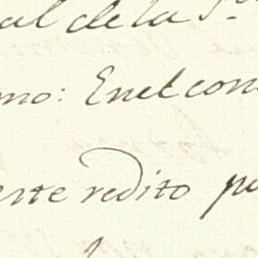 al de la S.
mo: En el con
este redito p